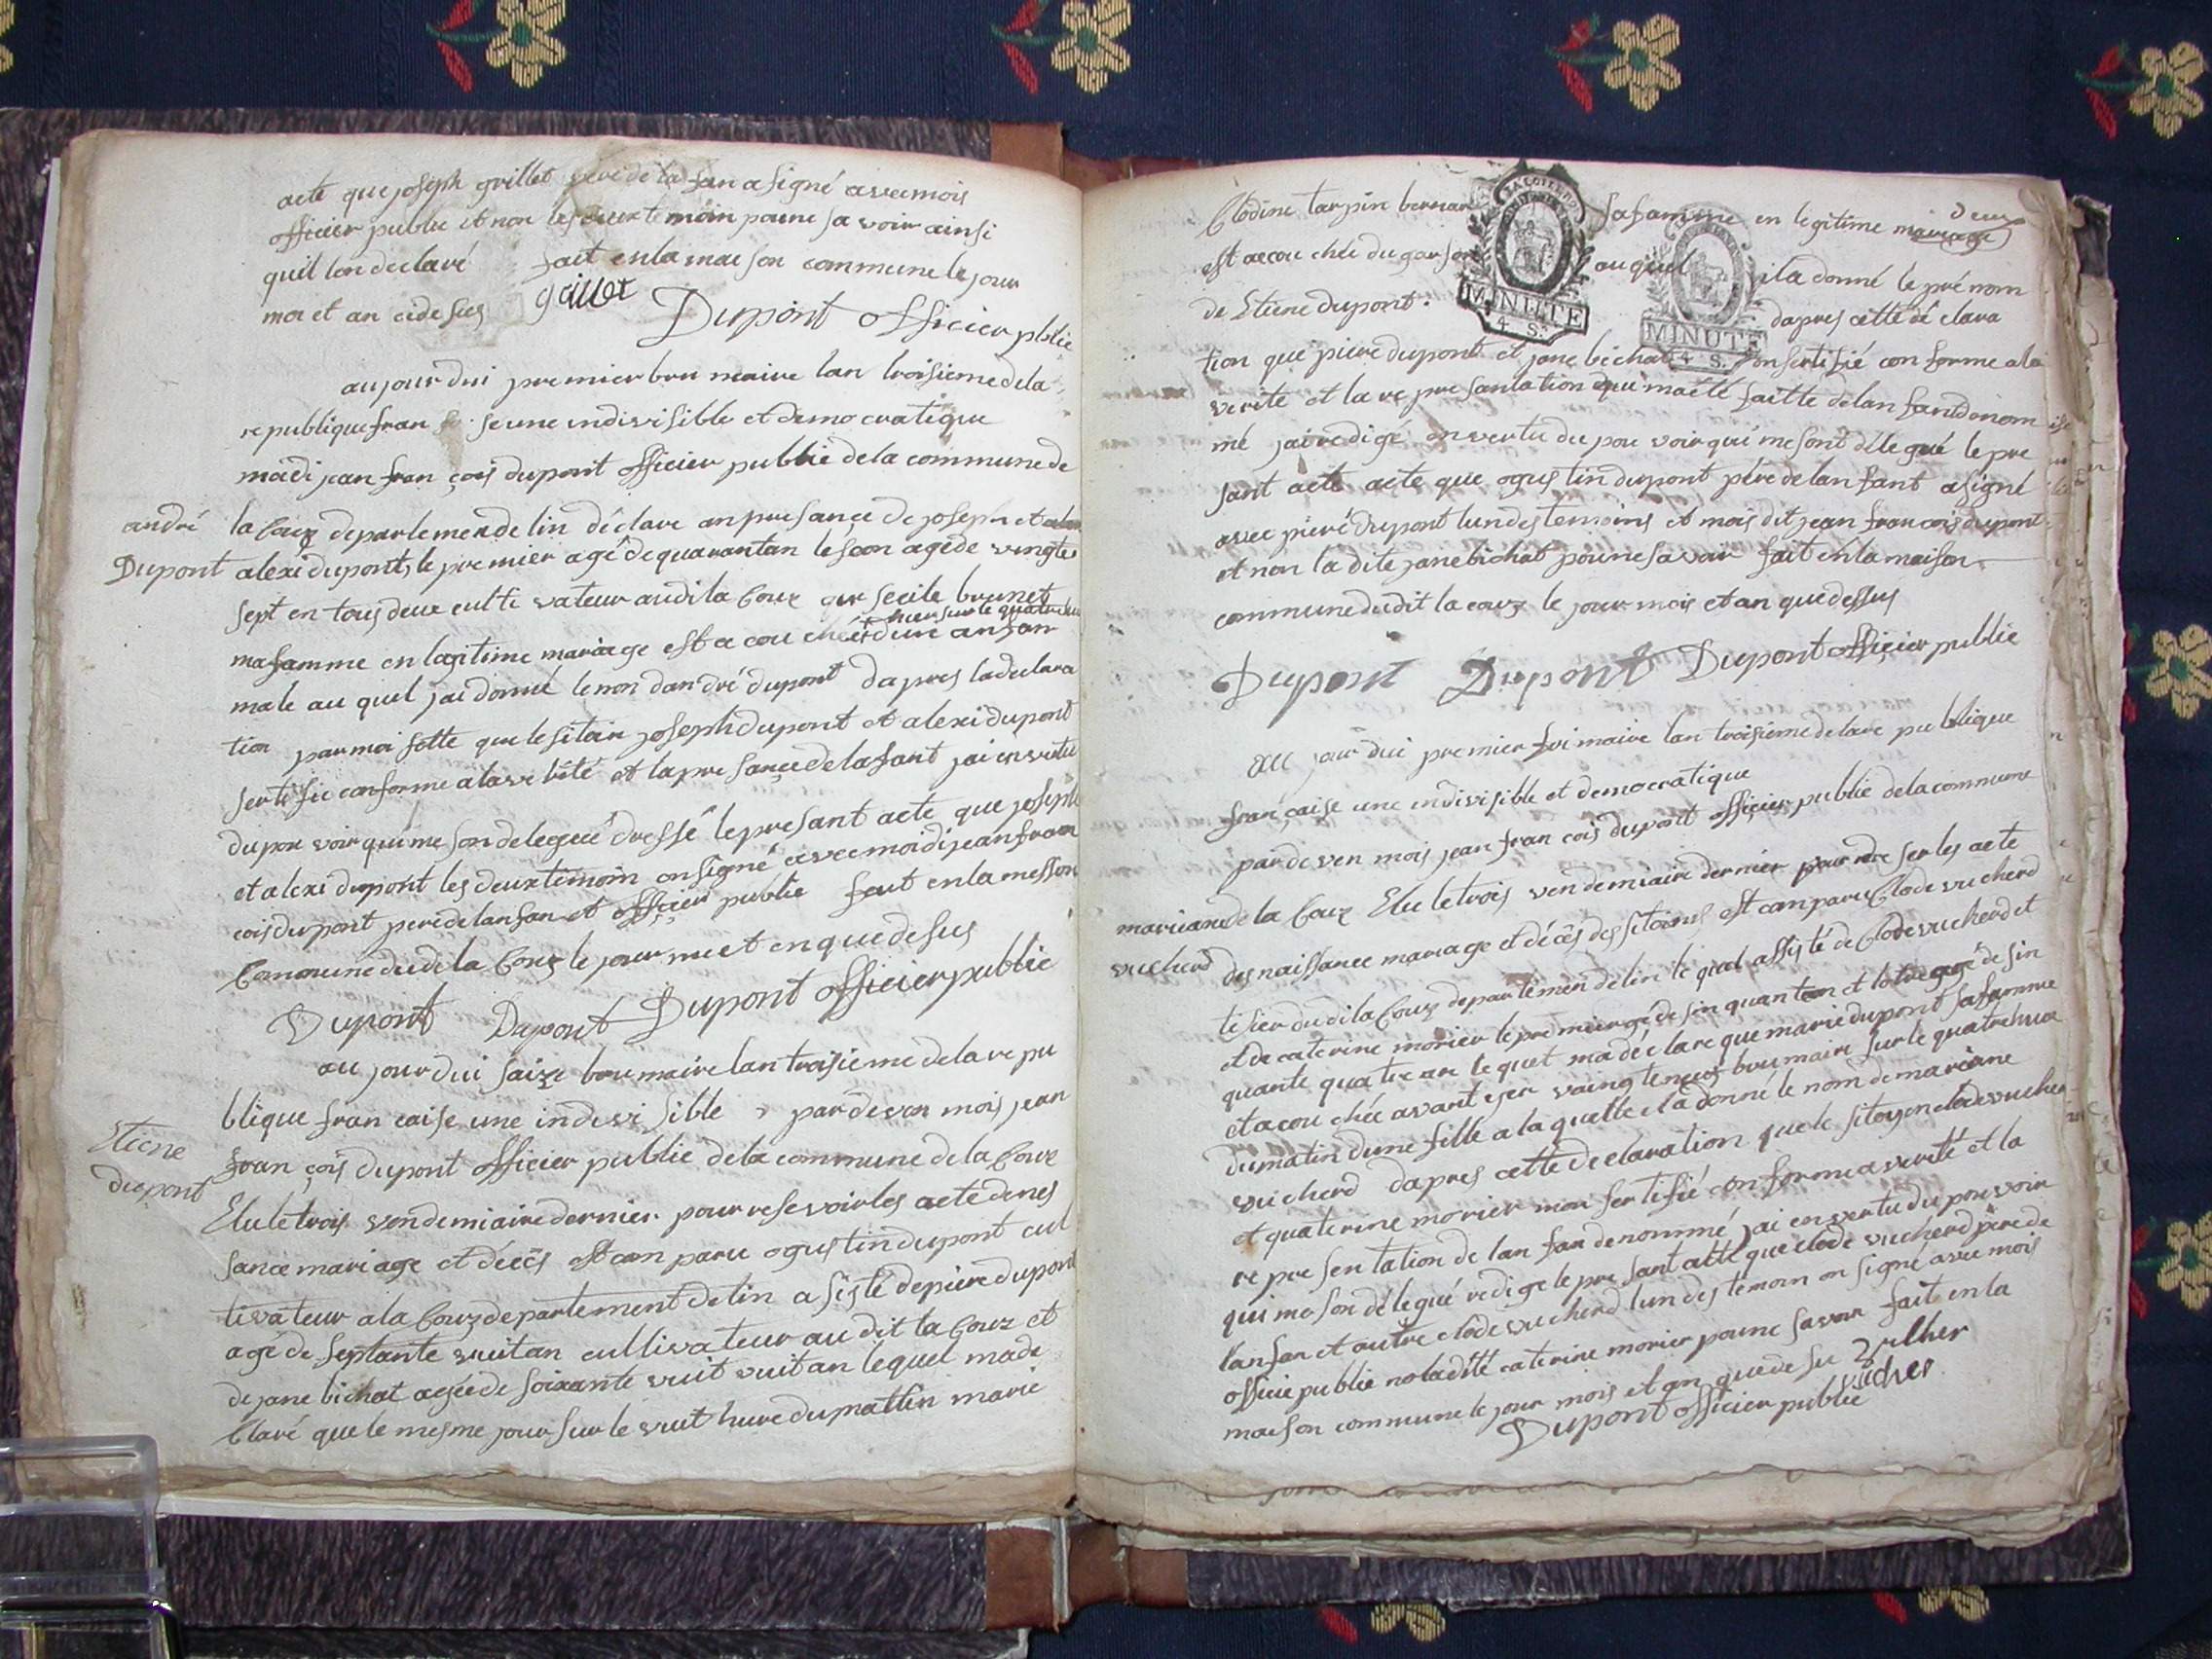 acte que joseph grillet pere de lafan a signé avecmois
officier public et non les deux temoin pourne sa voir ainsi
quil lon declaré fait enla maison commune le jour
moi et an cide sus grillet Dupont officier pblie
aujourdui premier bru maire lan troisieme dela
republique fran se une indivisible et democratique
madi jean fran çois dupont officier public dela commune de
andré
Dupont
la Coux departemen de lin déclare anpresance de joseph et
alexi dupont, le premier agé de quarantan le scon agé de vingte
sept en tous deux culti vateur audi la Coux que secile brunet
hier sur le quatre
ma famme en lagitime mariage est a cou chée dun anfan
male au quel jai donné le non dandré dupont dapres ladeclara
tion parmoi fette que le sitoien joseph dupont et alexi dupont
sertifie conforme ala vérité et la presance de lafant jai envertu
du pou voir qui me son delegué dressé le presant acte que joseph
et alexi dupont les deux temoin onsigné avec moi di jean fran
cois dupont pere de lanfan et officier public fait en la messon
Commune dudi la Coux le jour met en que desus
Dupont Dupont Dupont officier public
au jourdui saize brumaire lan troisieme dela repu
blique fran caise une indivi sible pardevan mois jean
Etiene
dupont
fran çois dupont officier public dela commune de la Coux
Elu le trois vendemiaire dernier pour resevoir les acte de nes
sance mariage et décès est con paru ogustin dupont cul
tivateur a la Coux departement de lin a sisté de piere dupont
agé de septante vuitan cultivateur au dit la Coux et
de jane bichat agée de soixante vuit vuitan lequel ma de
Claré que le mesme jour sur le vuit hure du mattin marie
Clodine tarpin bernar sa famme en legitime mariage
deux
est accou chée du garson au quel il a donné le pré nom
de Etiene dupont. dapres cette dé clara
tion que piere dupont et jane bichat on sertifié con forme a la
verité et la re pre santation qui ma été faitte de lan fant denom
mé jai redigé en vertu du pou voir qui me sont délegué le pre
sant acte acte que ogustin dupont pére de lan fant a signé
avec pieré dupont lun des temoins et mois dit jean francois dupont
et non la dite jane bichat pour ne savoir fait en la maison
commune du dit la coux le jour mois et an que dessus
Dupont Dupont Dupont officier public
au jour dui premier frimaire lan troisieme de la re publique
française une indivisible et democratique
par de ven mois jean fran cois dupont officier public de la commune
mariane
vucherd
de la Coux Elu le trois vendemiaire dernier pour re ser les acte
des naissance mariage et décès des sitoiens est con paru Clode vucherd
tisier du di la Coux departemen de lin le quel assisté de Clode vucherd et
et de caterine morier le premier agé de sin quantan et lotre agé de sin
quante quatre an le quel ma déclare que marie dupont sa famme
et acou chée avant ier vaingt neuf brumaire sur le quatre hure
du matin dune fille a la quelle il a donné le nom de mariane
vucherd dapres cette declaration que le sitoyen clode vucher
et quaterine morier mon sertifié con forme a verité et la
re pre sentation de lan fan denommé jai en vertu du pou voir
qui me son délegué redigé le pre sant acte que clode vucherd père de
lanfan et autre clode vucherd lun des temoin on signé avec mois
officie public no la ditte caterine morier pour ne savoir fait en la
maison commune le jour mois et an que de su vulher
vucher
Dupont officier public
LA LOI LE ROI
MINUTE
4 S.
MINUTE
4 S.